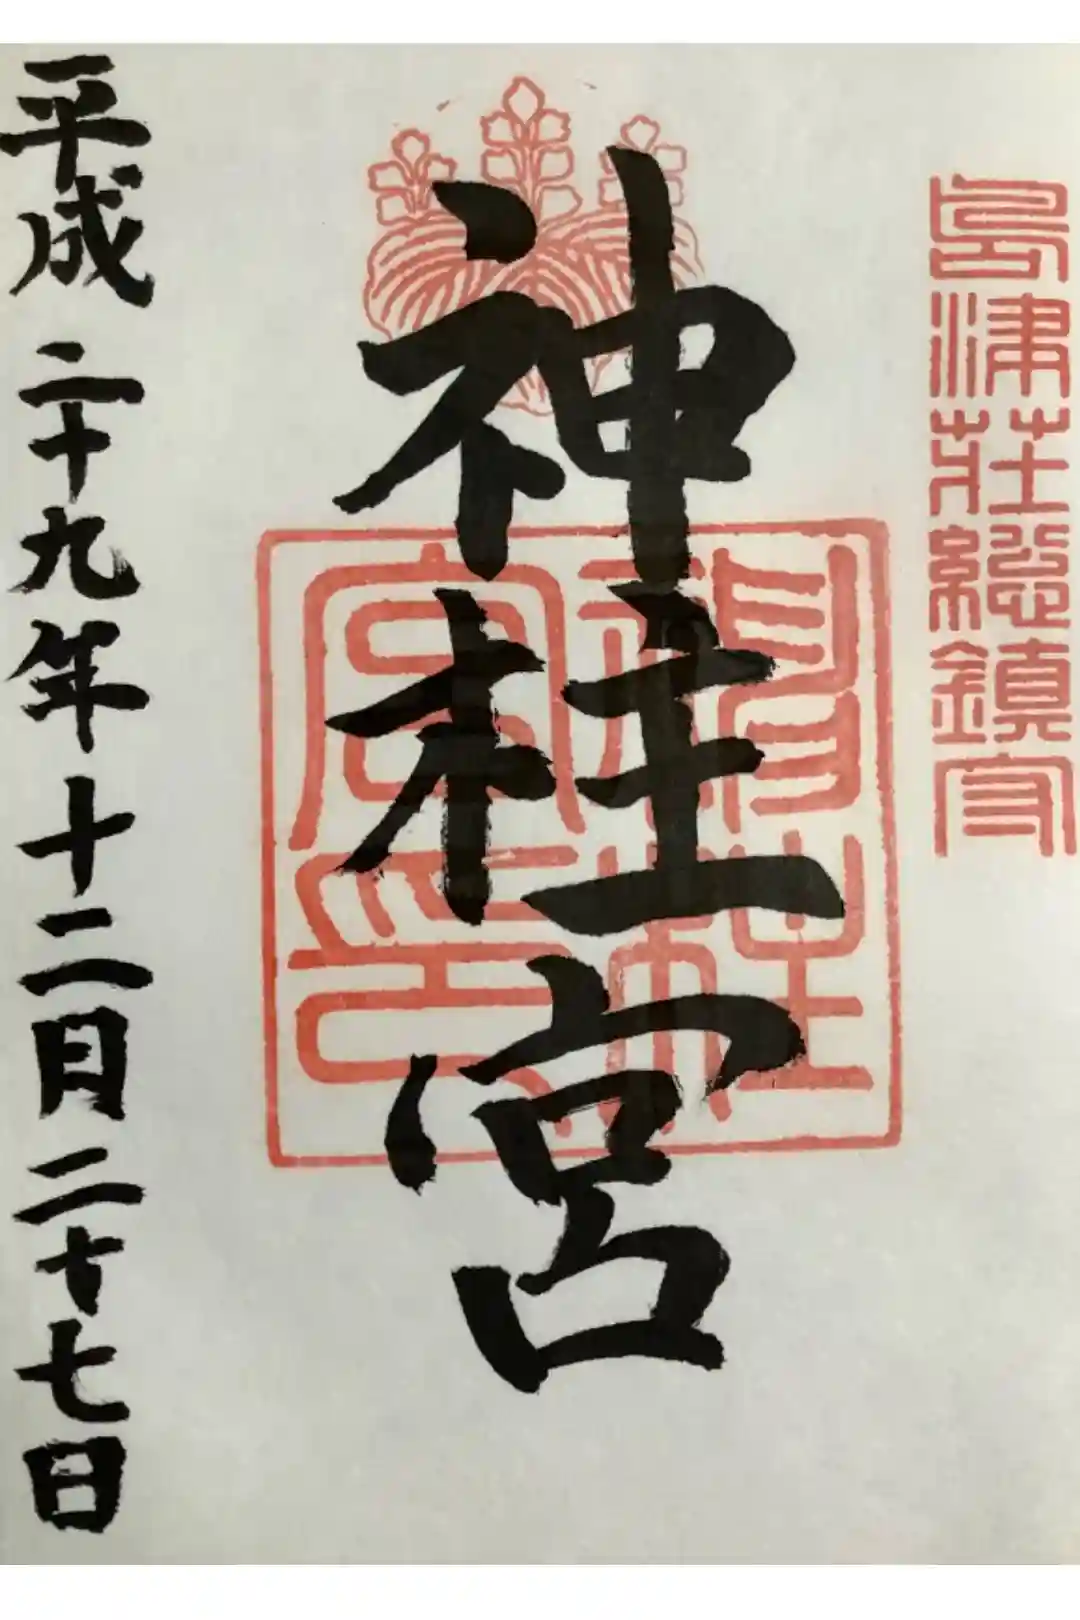 島津莊總鎮守
神柱宮
神柱宮印
平成二十九年十二月二十七日